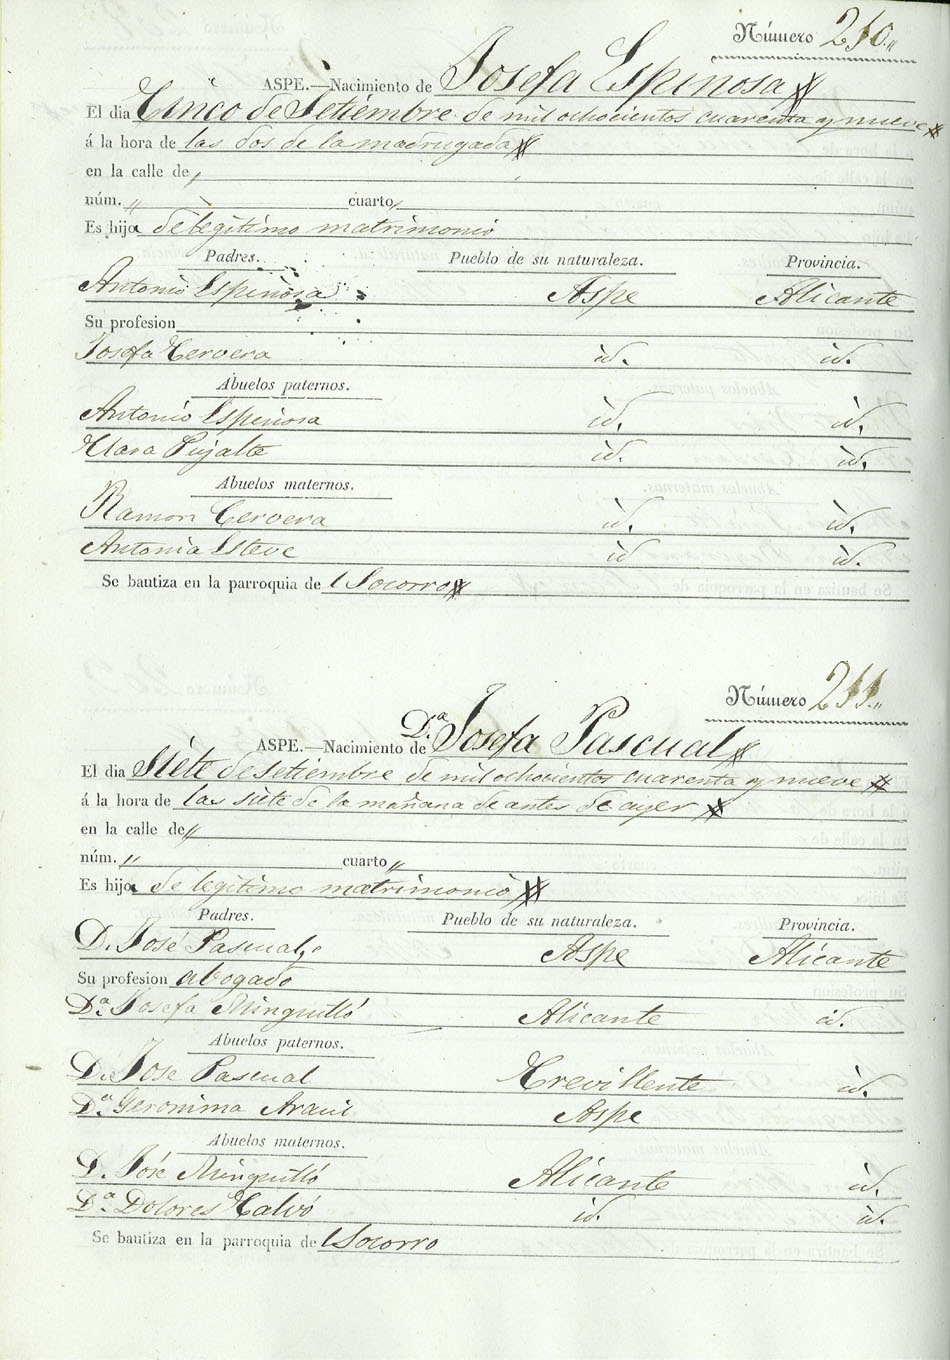 Número 210.,,
ASPE.—Nacimiento de Josefa Espinosa
El dia Cinco de Setiembre de mil ochocientos cuarenta y nueve
á la hora de las dos de la madrugada
en la calle de ,,
núm. ,, cuarto ,,
Es hija de legítimo matrimonio
Padres. Pueblo de su naturaleza. Provincia.
Antonio Espinosa Aspe Alicante
Su profesion
Josefa Cervera id. id.
Abuelos paternos.
Antonio Espinosa id. id.
Clara Pujalte id. id.
Abuelos maternos.
Ramon Cervera id. id.
Antonia Esteve id id.
Se bautiza en la parroquia de l Socorro
Número 211.,,
ASPE.—Nacimiento de D.ª Josefa Pascual
El dia Siete de Setiembre de mil ochocientos cuarenta y nueve
á la hora de las siete de la mañana de antes de ayer
en la calle de ,,
núm. ,, cuarto ,,
Es hija de legítimo matrimonio
Padres. Pueblo de su naturaleza. Provincia.
D. José Pascual, Aspe Alicante
Su profesion abogado
D.ª Josefa Minguilló Alicante id.
Abuelos paternos.
D. Jose Pascual Crevillente id.
D.ª Geronima Aspe
Abuelos maternos.
D. José Minguilló Alicante id.
D.ª Dolores Calvó id. id.
Se bautiza en la parroquia de l Socorro